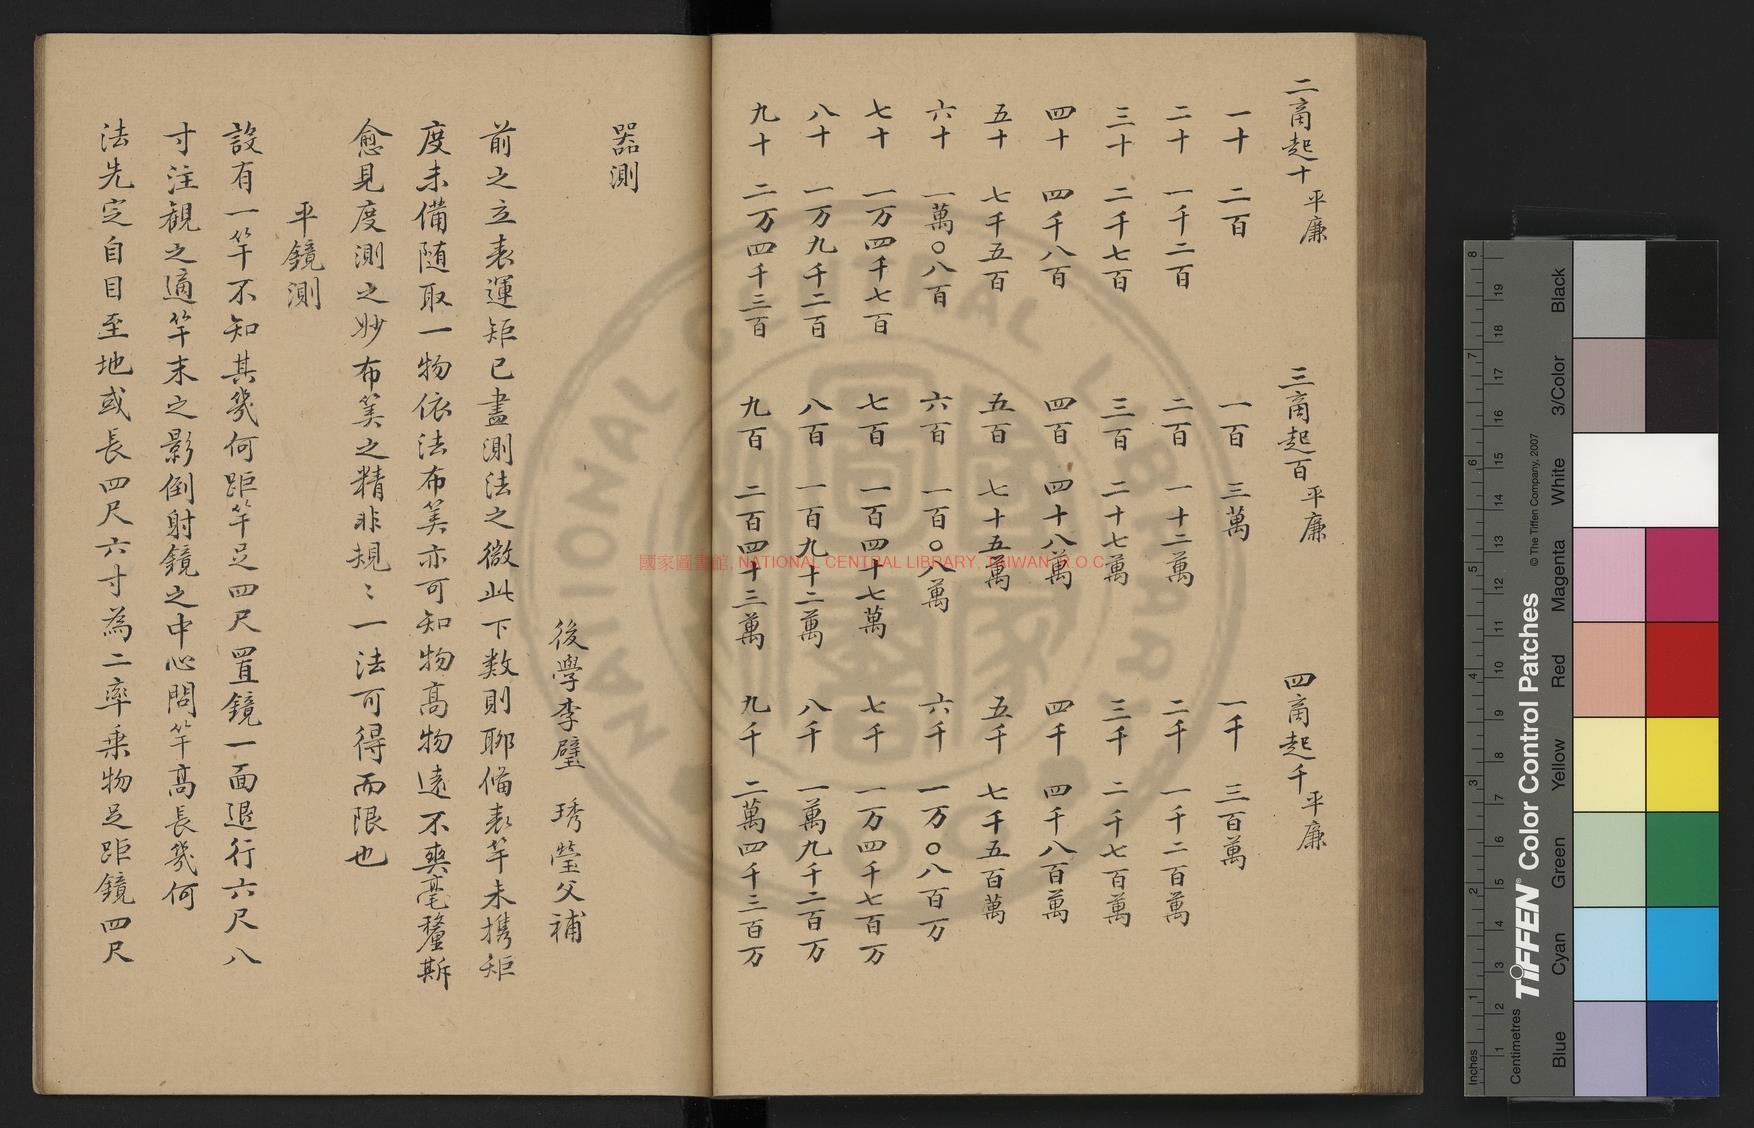 二商起十平廉
一十 二百
二十 一千二百
三十 二千七百
四十 四千八百
五十 七千五百
六十 一萬〇八百
七十 一万四千七百
八十 一万九千二百
九十 二万四千三百
三商起百平廉
一百 三萬
二百 一十二萬
三百 二十七萬
四百 四十八萬
五百 七十五萬
六百 一百〇八萬
七百 一百四十七萬
八百 一百九十二萬
九百 二百四十三萬
四商起千平廉
一千 三百萬
二千 一千二百萬
三千 二千七百萬
四千 四千八百萬
五千 七千五百萬
六千 一万〇八百万
七千 一万四千七百万
八千 一萬九千二百万
九千 二萬四千三百万
器測
後學李璧 琇瑩父補
前之立表運矩已盡測法之微此下数則聊備表竿未携矩
度未備随取一物依法布筭亦可知物高物遠不爽毫釐斯
愈見度測之妙布筭之精非規〻一法可得而限也
平鏡測
設有一竿不知其㡬何距竿足四尺置鏡一面退行六尺八
寸注觀之適竿末之影倒射鏡之中心問竿高長㡬何
法先定自目至地或長四尺六寸為二率乗物足距鏡四尺
國家圖書館, NATIONAL CENTRAL LIBRARY, TAIWAN R.O.C.
NATIONAL CENTRAL LIBRARY
Inches
Centimetres
TIFFEN® Color Control Patches
© The Tiffen Company, 2007
Blue
Cyan
Green
Yellow
Red
Magenta
White
3/Color
Black